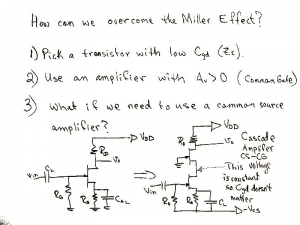 How can we overcome the Miller Effect?
1) Pick a transistor with low Cgd (Zf).
2) Use an amplifier with Av>0 (Common Gate)
3) What if we need to use a common source
amplifier?
VDD
RD
Vo
Vin
RG
VDD
RD
Vo
Cascade
Ampifer
CS-CG
This voltage
is constant
so Cgd doesn't
matter
Vin
RG
-VSS